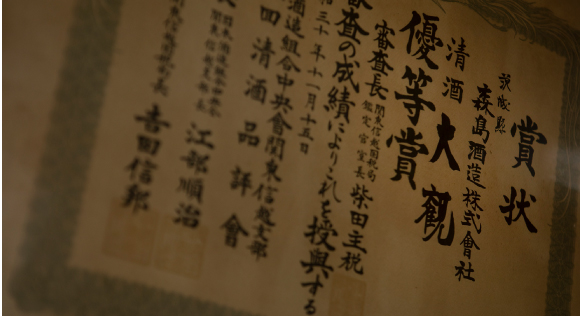 賞状
茨城縣
森島酒造株式會社
清酒 大觀
優等賞
審査長 關東信越国税局 鑑定官室長 柴田主税
審査の成績によりこれを授與する
三十年十一月十五日
酒造組合中央會關東信越支部
四清酒品評會
江部順治
吉田信邦